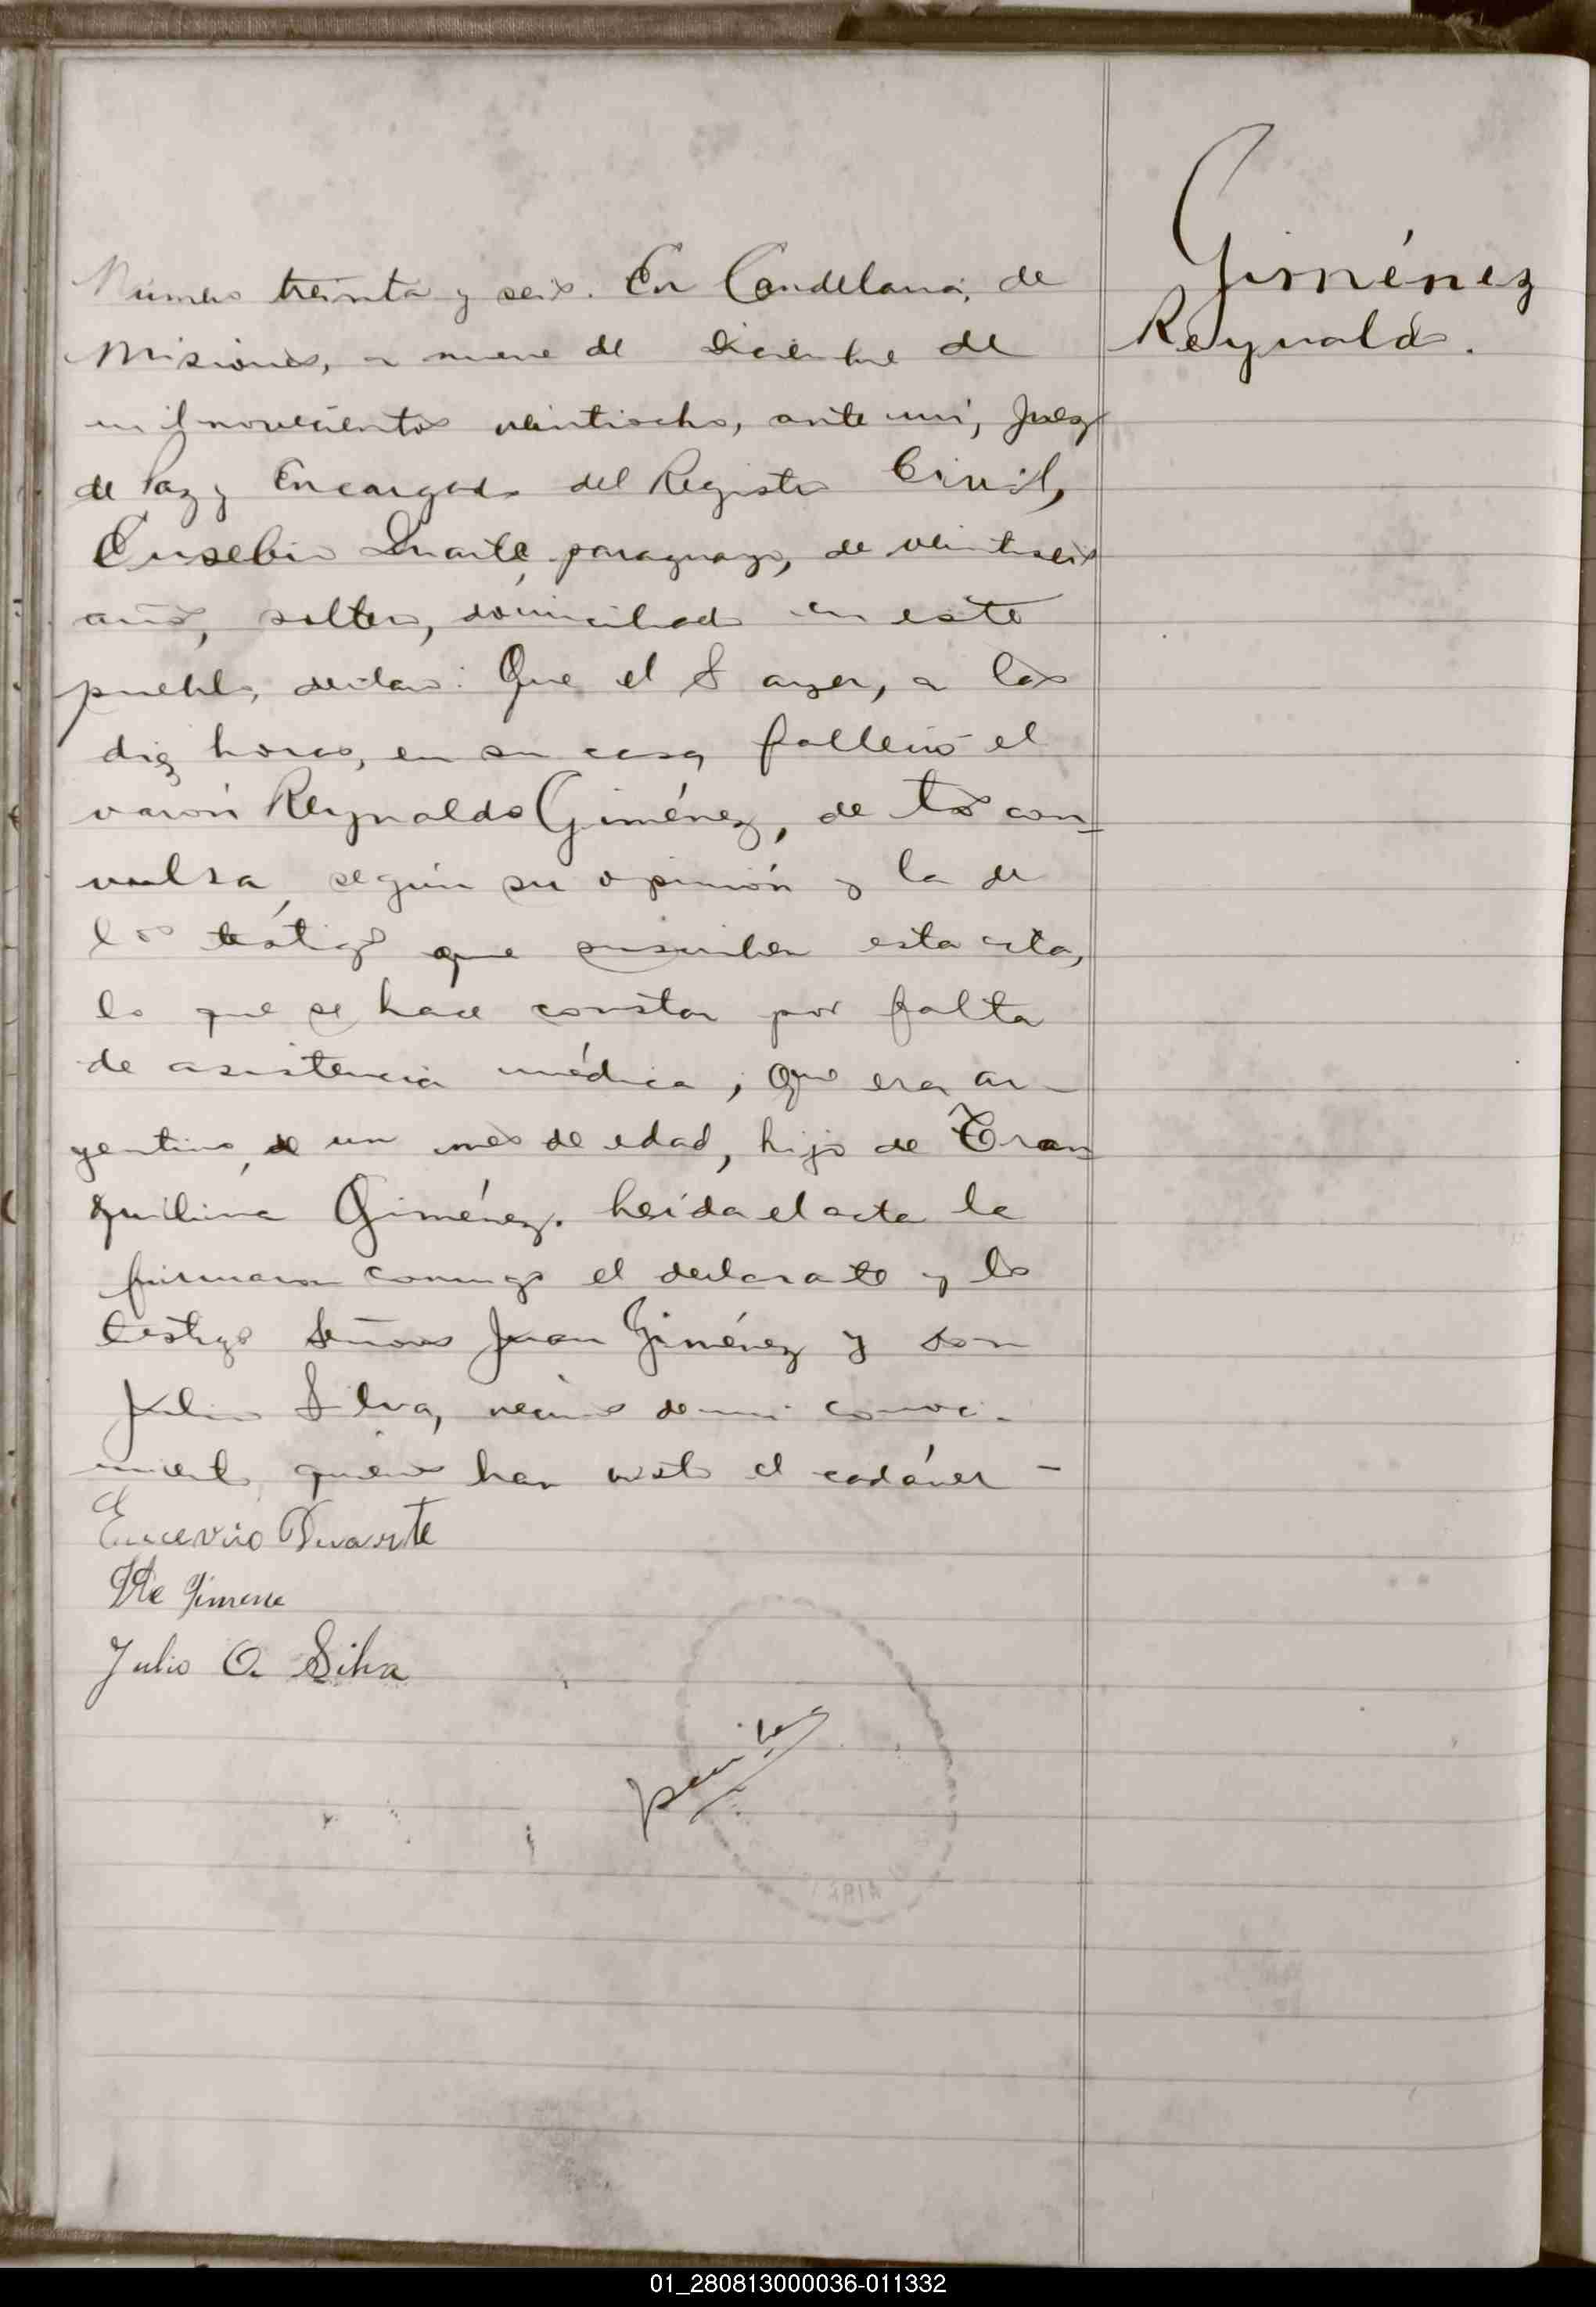 Giménez
Reynaldo.
Número treinta y seis. En Candelaria, de
Misiones, a nueve de Diciembre de
mil novecientos veintiocho, ante mi, Juez
de Paz y Encargado del Registro Civil,
Eusebio Duarte, paraguayo, de veintiseis
años, soltero, domiciliado en este
pueblo, declaró: Que el 8 ayer, a las
diez horas, en su casa, falleció el
varón Reynaldo Giménez, de tos con-
vulsa, según su opinión y la de
los testigos que suscriben esta acta,
lo que se hace constar por falta
de asistencia médica; Que era ar-
gentino, de un mes de edad, hijo de Tran-
quilina Giménez. Leída el acta la
firmaron conmigo el declarante y los
testigos Señores Juan Giménez y don
Julio Silva, vecinos de mi conoci-
miento, quienes han visto el cadáver -
Eucevio Duarte
Jimene
Julio O. Silva
01_280813000036-011332